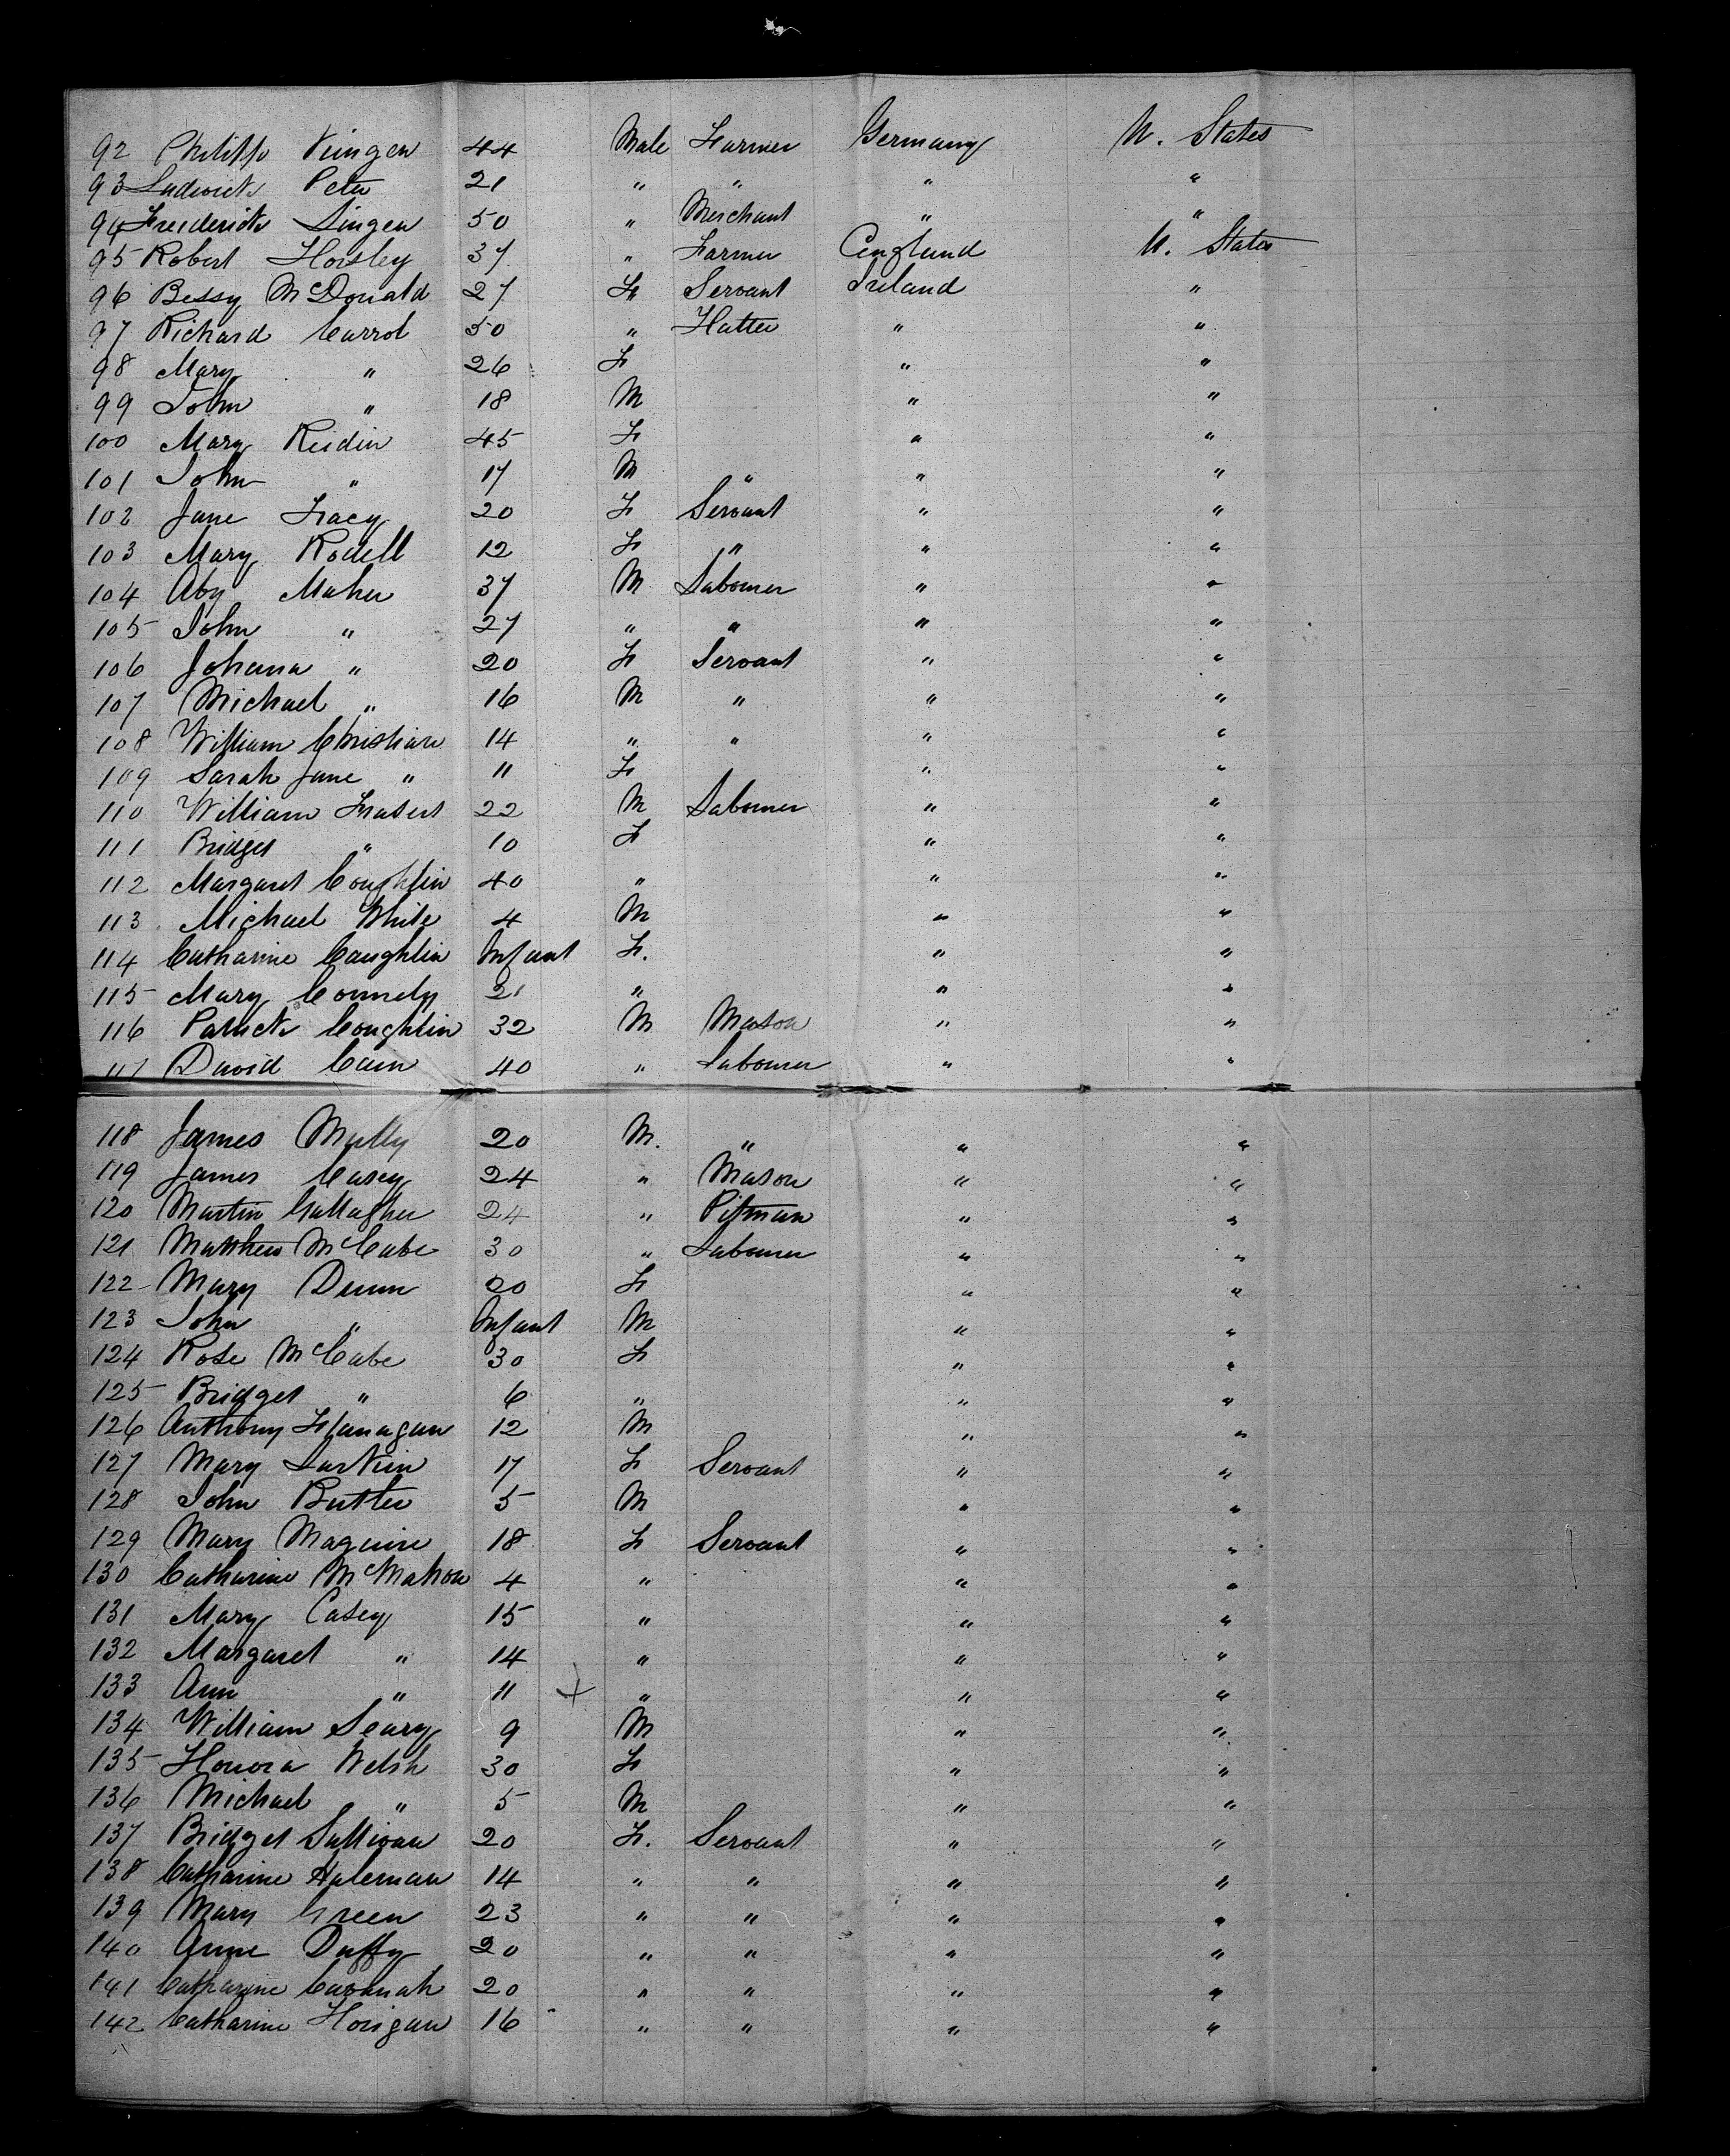 92 Philipp Kingen 44 Male Farmer Germany U. States
93 Ludwick Peter 21 " " " "
94 Freiderick Singen 50 " Merchant " "
95 Robert Horsley 37 " Farmer England U. States
96 Bessy McDonald 27 F Servant Ireland "
97 Richard Carrol 50 " Hatter " "
98 Mary " 26 F " "
99 John " 18 M " "
100 Mary Reidin 45 F " "
101 John " 17 M " " "
102 Jane Tracy 20 F Servant " "
103 Mary Rodell 12 F " " "
104 Aby Maher 37 M Labourer " "
105 John " 27 " " " "
106 Johana " 20 F Servant " "
107 Michael " 16 M " " "
108 William Christian 14 " " " "
109 Sarah Jane " 11 F " "
110 William 22 M Labourer " "
111 Bridget " 10 F " "
112 Margaret Coughlin 40 " " "
113 Michael White 4 M " "
114 Catharine Caughlin Infant F. " "
115 Mary Connely 21 " " "
116 Patrick Coughlin 32 M Mason " "
117 David Cain 40 " Labourer " "
118 James Mully 20 M. " " "
119 James Carey 24 " Mason " "
120 Martin Gallagher 24 " Pitman " "
121 Matthew McCabe 30 " Labourer " "
122 Mary Dunn 20 F " "
123 John " Infant M " "
124 Rose McCabe 30 F " "
125 Bridget " 6 " " "
126 Anthony Flanagan 12 M " "
127 Mary Larkin 17 F Servant " "
128 John Butler 5 M " "
129 Mary Maguire 18 F Servant " "
130 Catharine McMahon 4 " " "
131 Mary Casey 15 " " "
132 Margaret " 14 " " "
133 Ann " 11 + " " "
134 William Seary 9 M " "
135 Honora Welsh 30 F " "
136 Michael " 5 M " "
137 Bridget Sullivan 20 F. Servant " "
138 Catharine Haleman 14 " " " "
139 Mary Green 23 " " " "
140 Anne Duffy 20 " " " "
141 Catharine Cavanah 20 " " " "
142 Catharine Horigan 16 " " " "